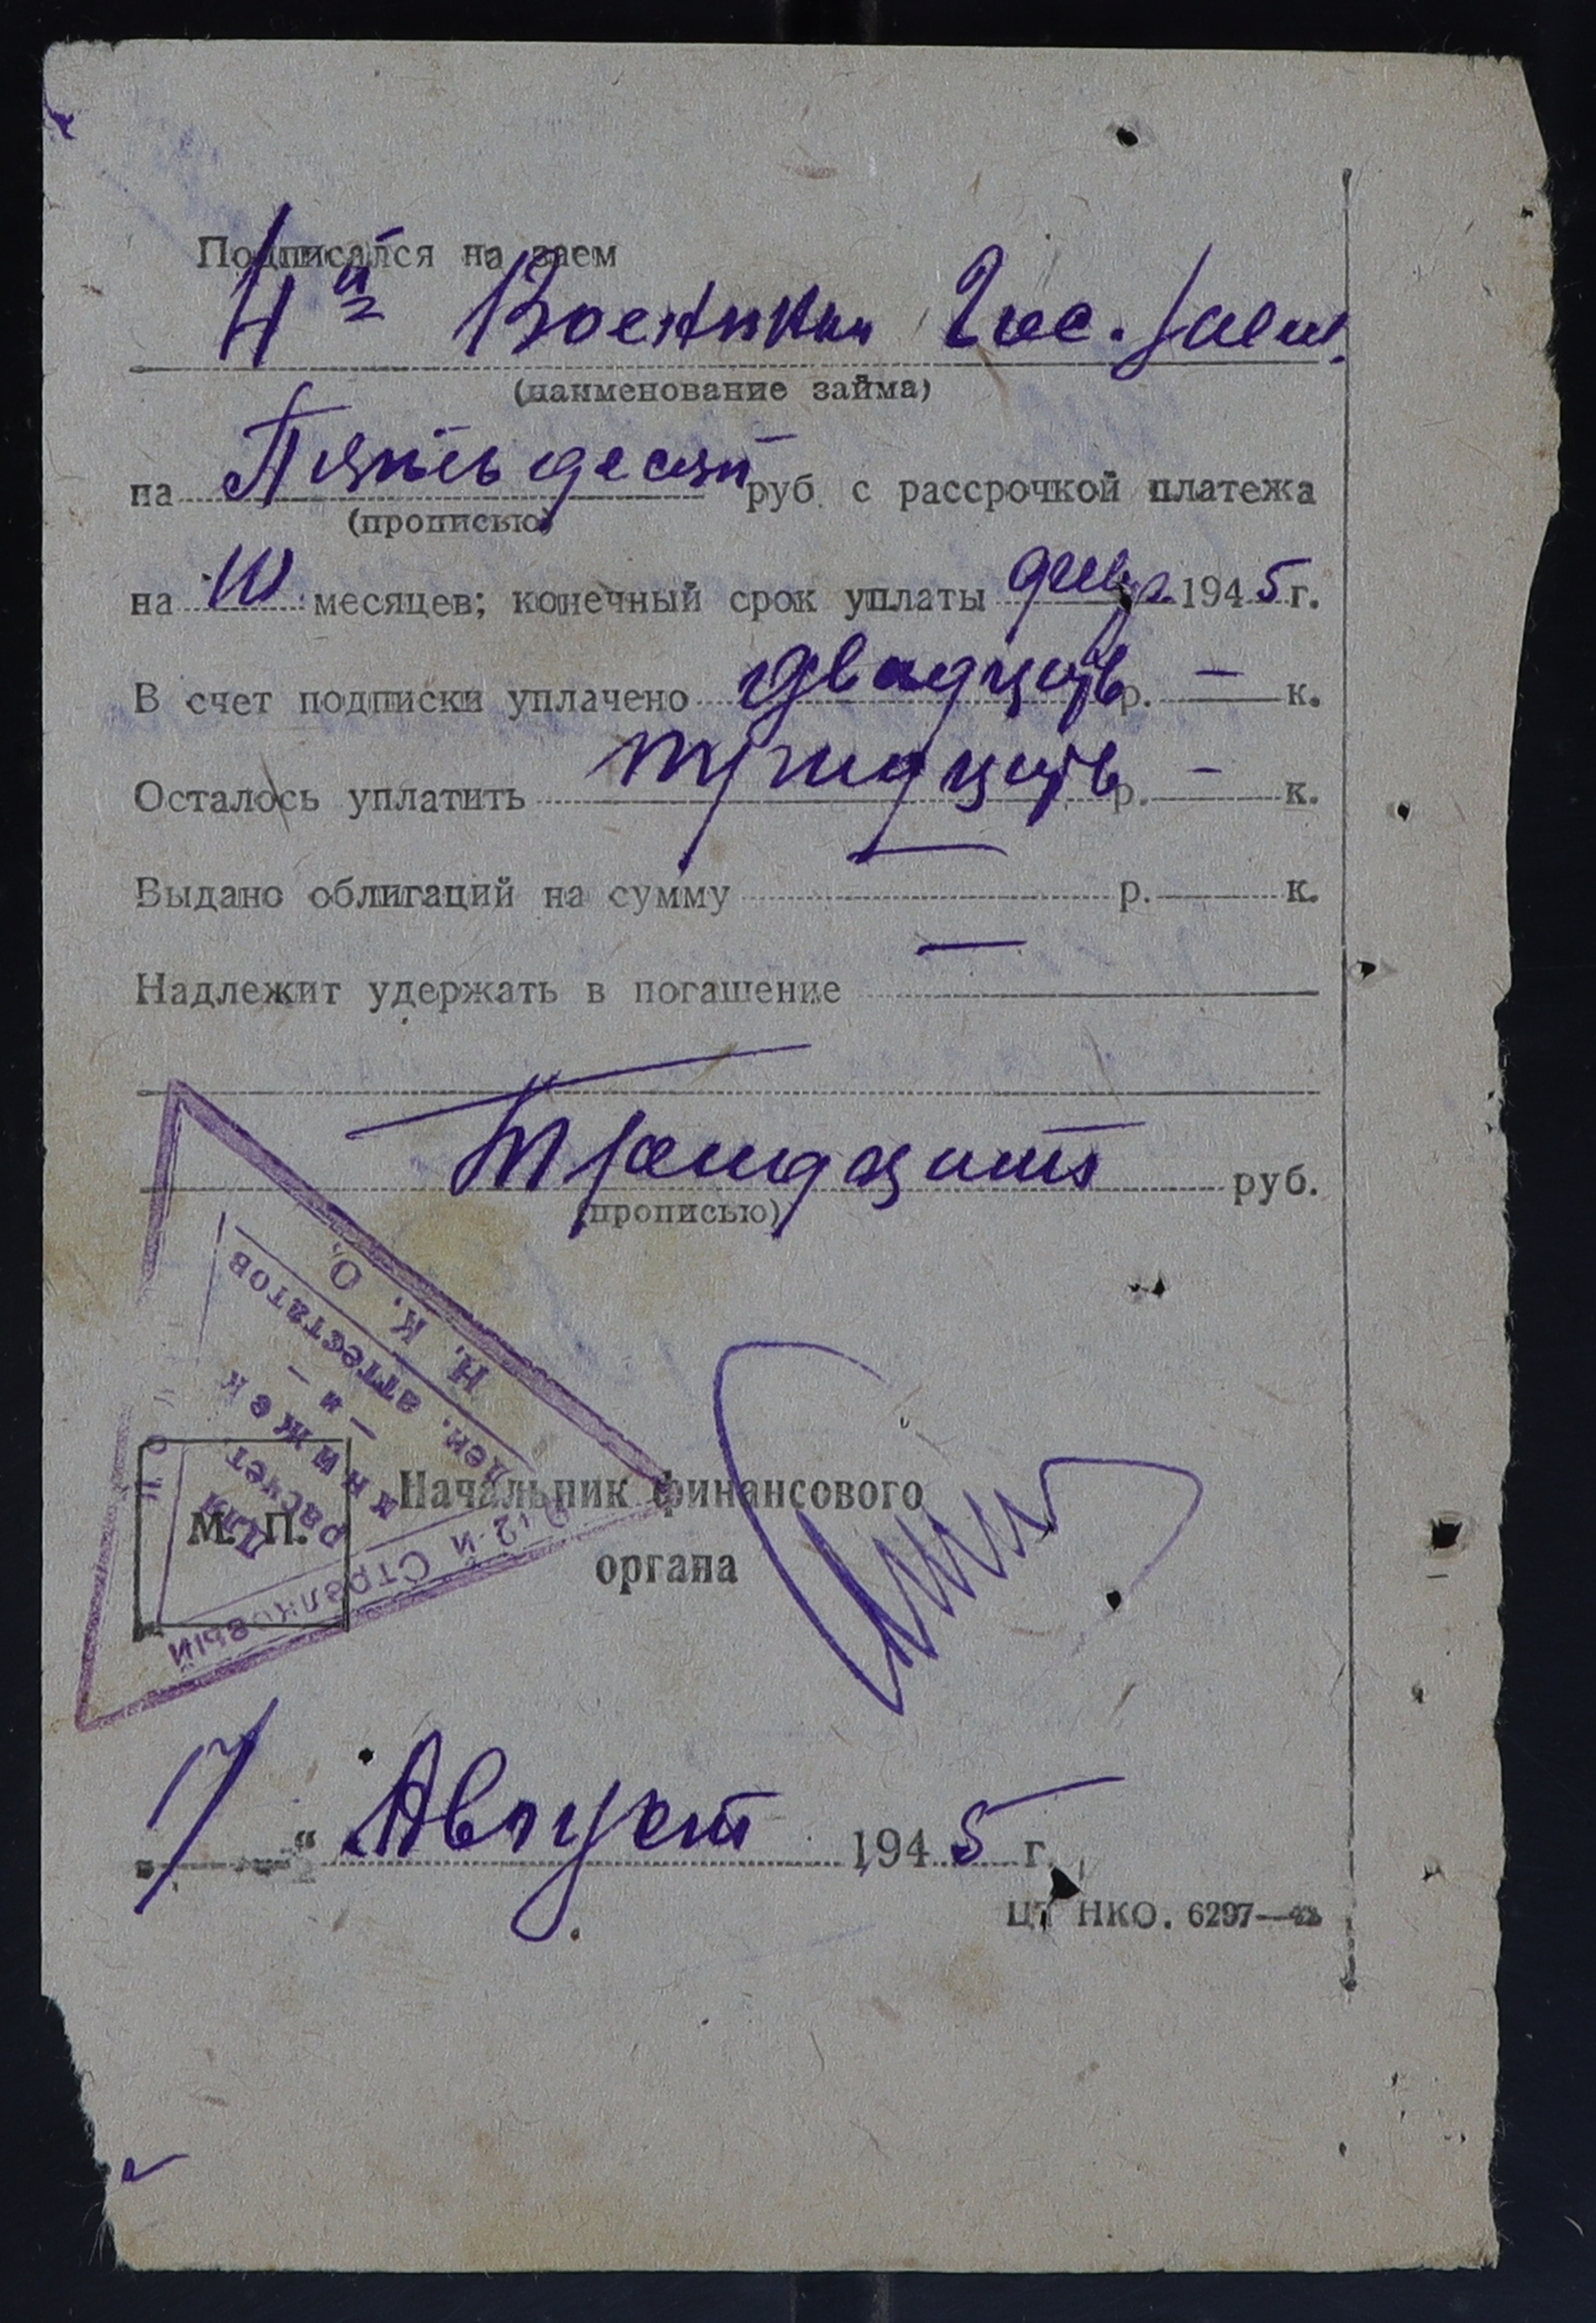 Подписался на заем
4й Военный Гос. Заем.
(наименование займа)
на Пятьдесят руб. с рассрочкой платежа
(прописью)
на 10 месяцев; конечный срок уплаты 1945 г.
В счет подписки уплачено двадцать р. — к.
Осталось уплатить тридцать р. — к.
Выдано облигаций на сумму — р. к.
Надлежит удержать в погашение —
Тридцать руб.
(прописью)
Н. К. О.
Для
расчет.
книжек
— и —
ден. аттестатов
Стрелковый
М. П.
Начальник финансового
органа
7 " Август 1945 г.
ЦТ НКО. 6297—